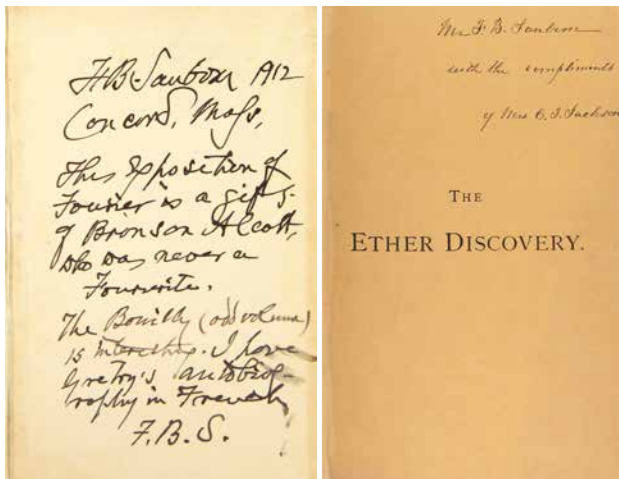 F.B. Sanborn 1912
Concord, Mass,
This Exposition of
Fourier is a gift
of Bronson Alcott,
who was never a
Fourierite.
The Bouilly (odd volume)
is interesting. I have
Gretry's autobiog-
raphy in French
F.B.S.
Mr F. B. Sanborn
with the compliments
of Mrs C. T. Jackson
THE
ETHER DISCOVERY.